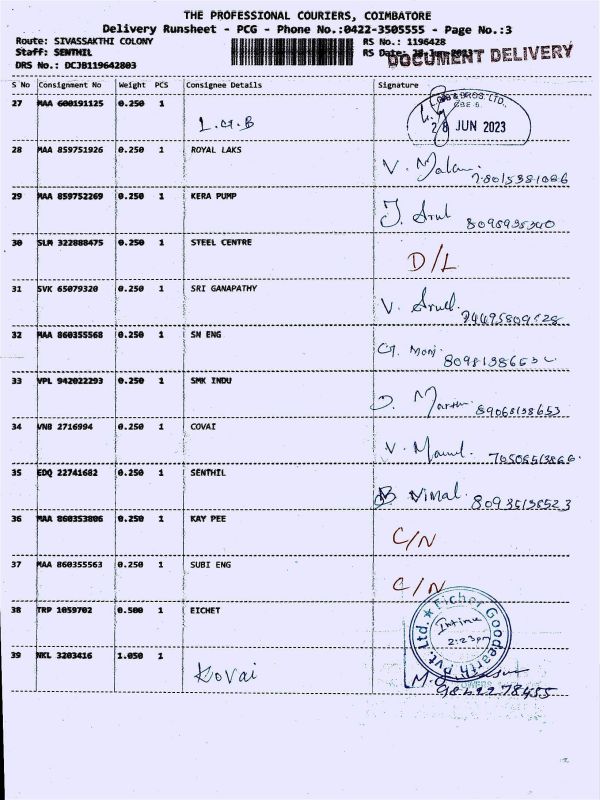 THE PROFESSIONAL COURIERS, COIMBATORE
Delivery Runsheet - PCG - Phone No.:0422-3505555 - Page No.:3
Route: SIVASSAKTHI COLONY RS No.: 1196428
Staff: SENTHIL RS Date: 28-Jun-2023 DOCUMENT DELIVERY
DRS No.: DCJB119642803
S No Consignment No Weight PCS Consignee Details Signature
27 MAA 600191125 0.250 1 L.G.B
28 JUN 2023
28 MAA 859751926 0.250 1 ROYAL LAKS V.
29 MAA 859752269 0.250 1 KERA PUMP J. Arul
30 SLM 322888475 0.250 1 STEEL CENTRE D/L
31 SVK 65079320 0.250 1 SRI GANAPATHY V.
32 MAA 860355568 0.250 1 SN ENG
33 VPL 942022293 0.250 1 SMK INDU 89068138653
34 VNB 2716994 0.250 1 COVAI V.
35 EDQ 22741682 0.250 1 SENTHIL B Vimal
36 MAA 860353806 0.250 1 KAY PEE C/N
37 MAA 860355563 0.250 1 SUBI ENG C/N
38 TRP 1059702 0.500 1 EICHET
Eicher Goodearth Pvt. Ltd.
2:23pm
39 NKL 3203416 1.050 1 Kovai